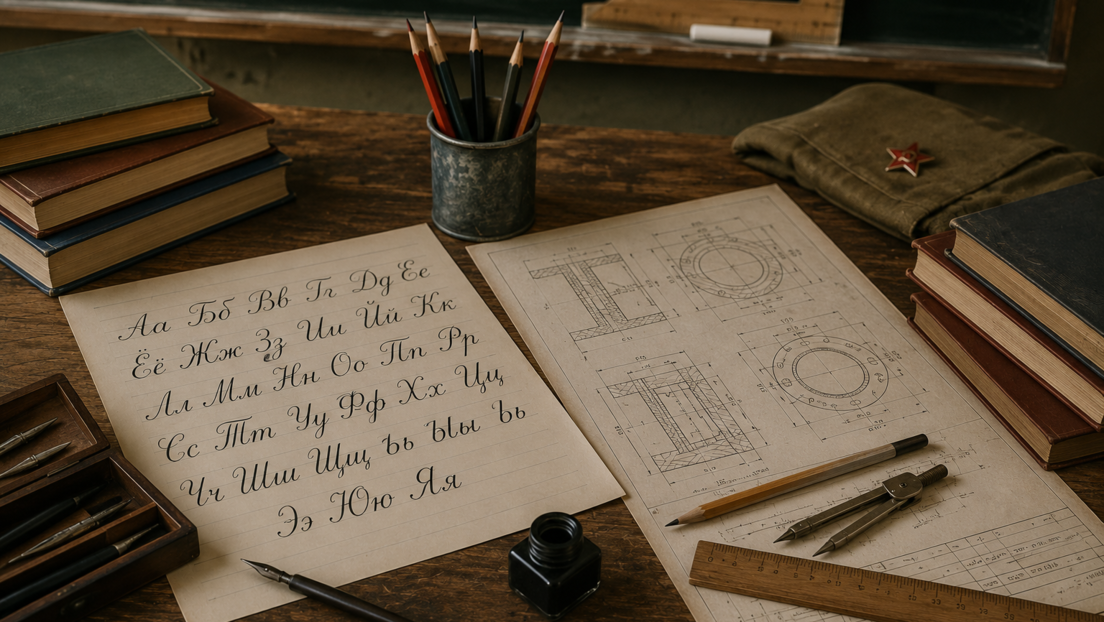 Аа Бб Вв Гг Дд Ее
Ёё Жж Зз Ии Йй Кк
Лл Мм Нн Оо Пп Рр
Сс Тт Уу Фф Хх Цц
Чч Шш Щщ Ъъ Ыы Ьь
Ээ Юю Яя